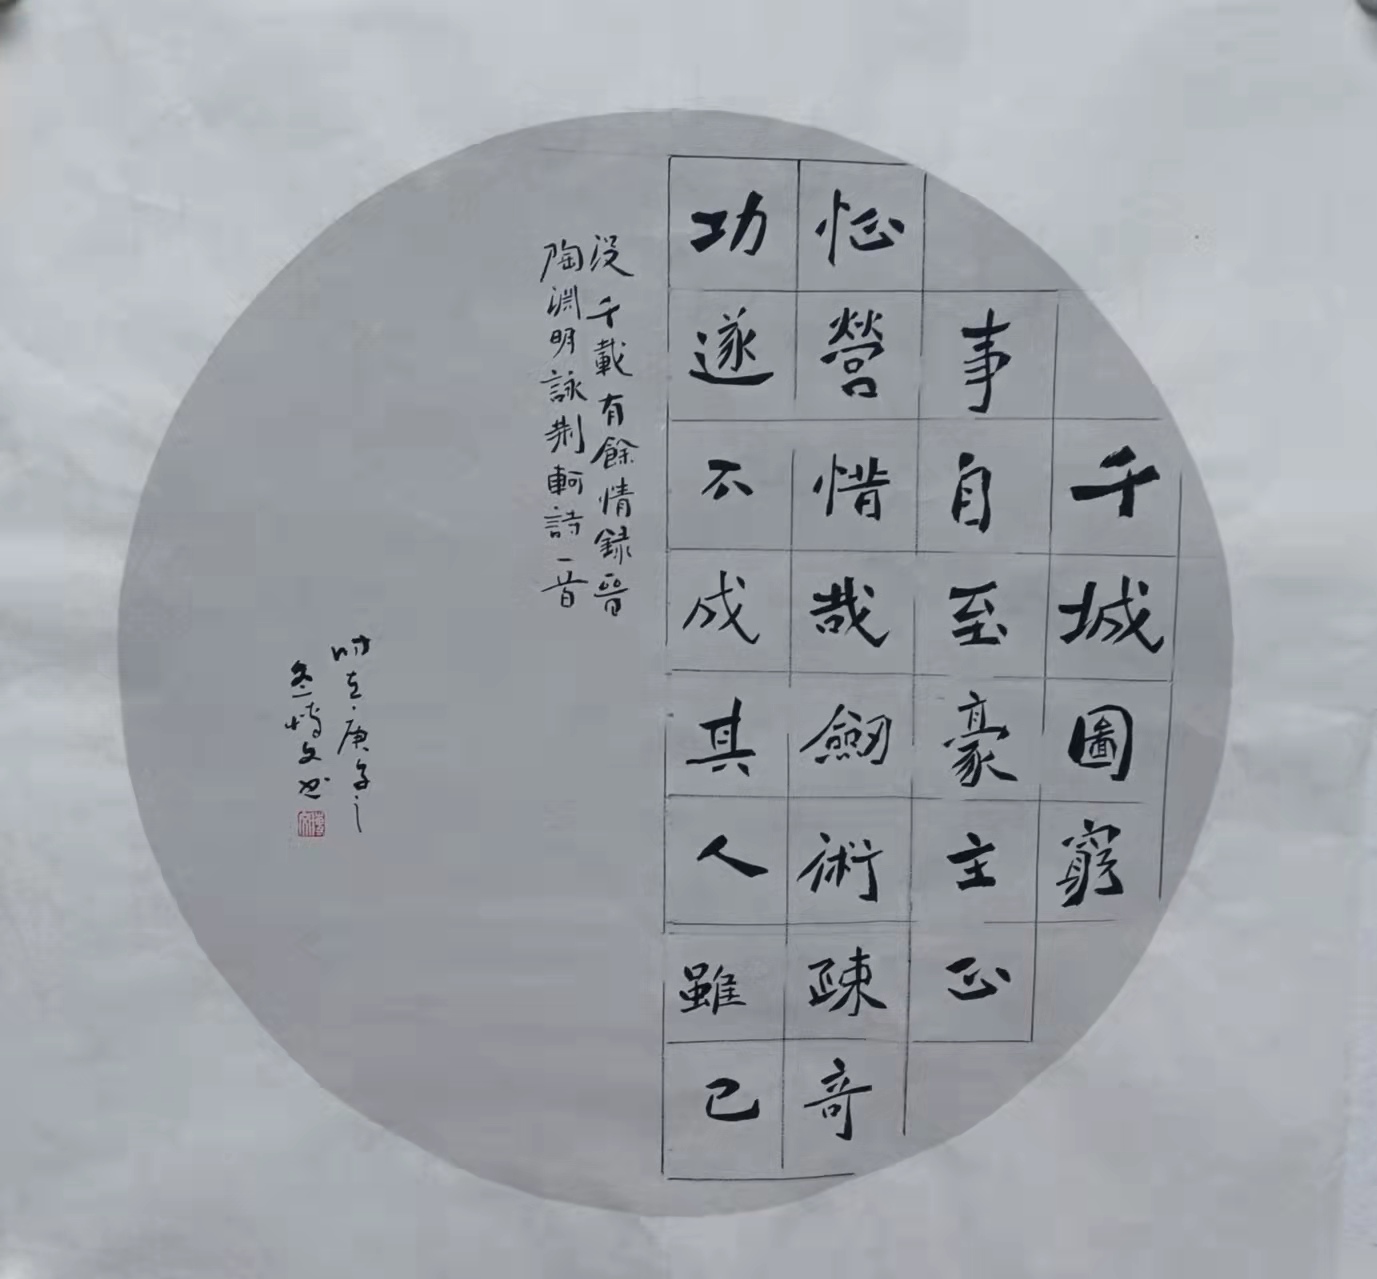 千城圖窮
事自至豪主正
怔營惜哉劔術疎奇
功遂不成其人雖已
没千載有餘情錄晉
陶淵明詠荆軻詩一首
時在庚子之
冬
文书